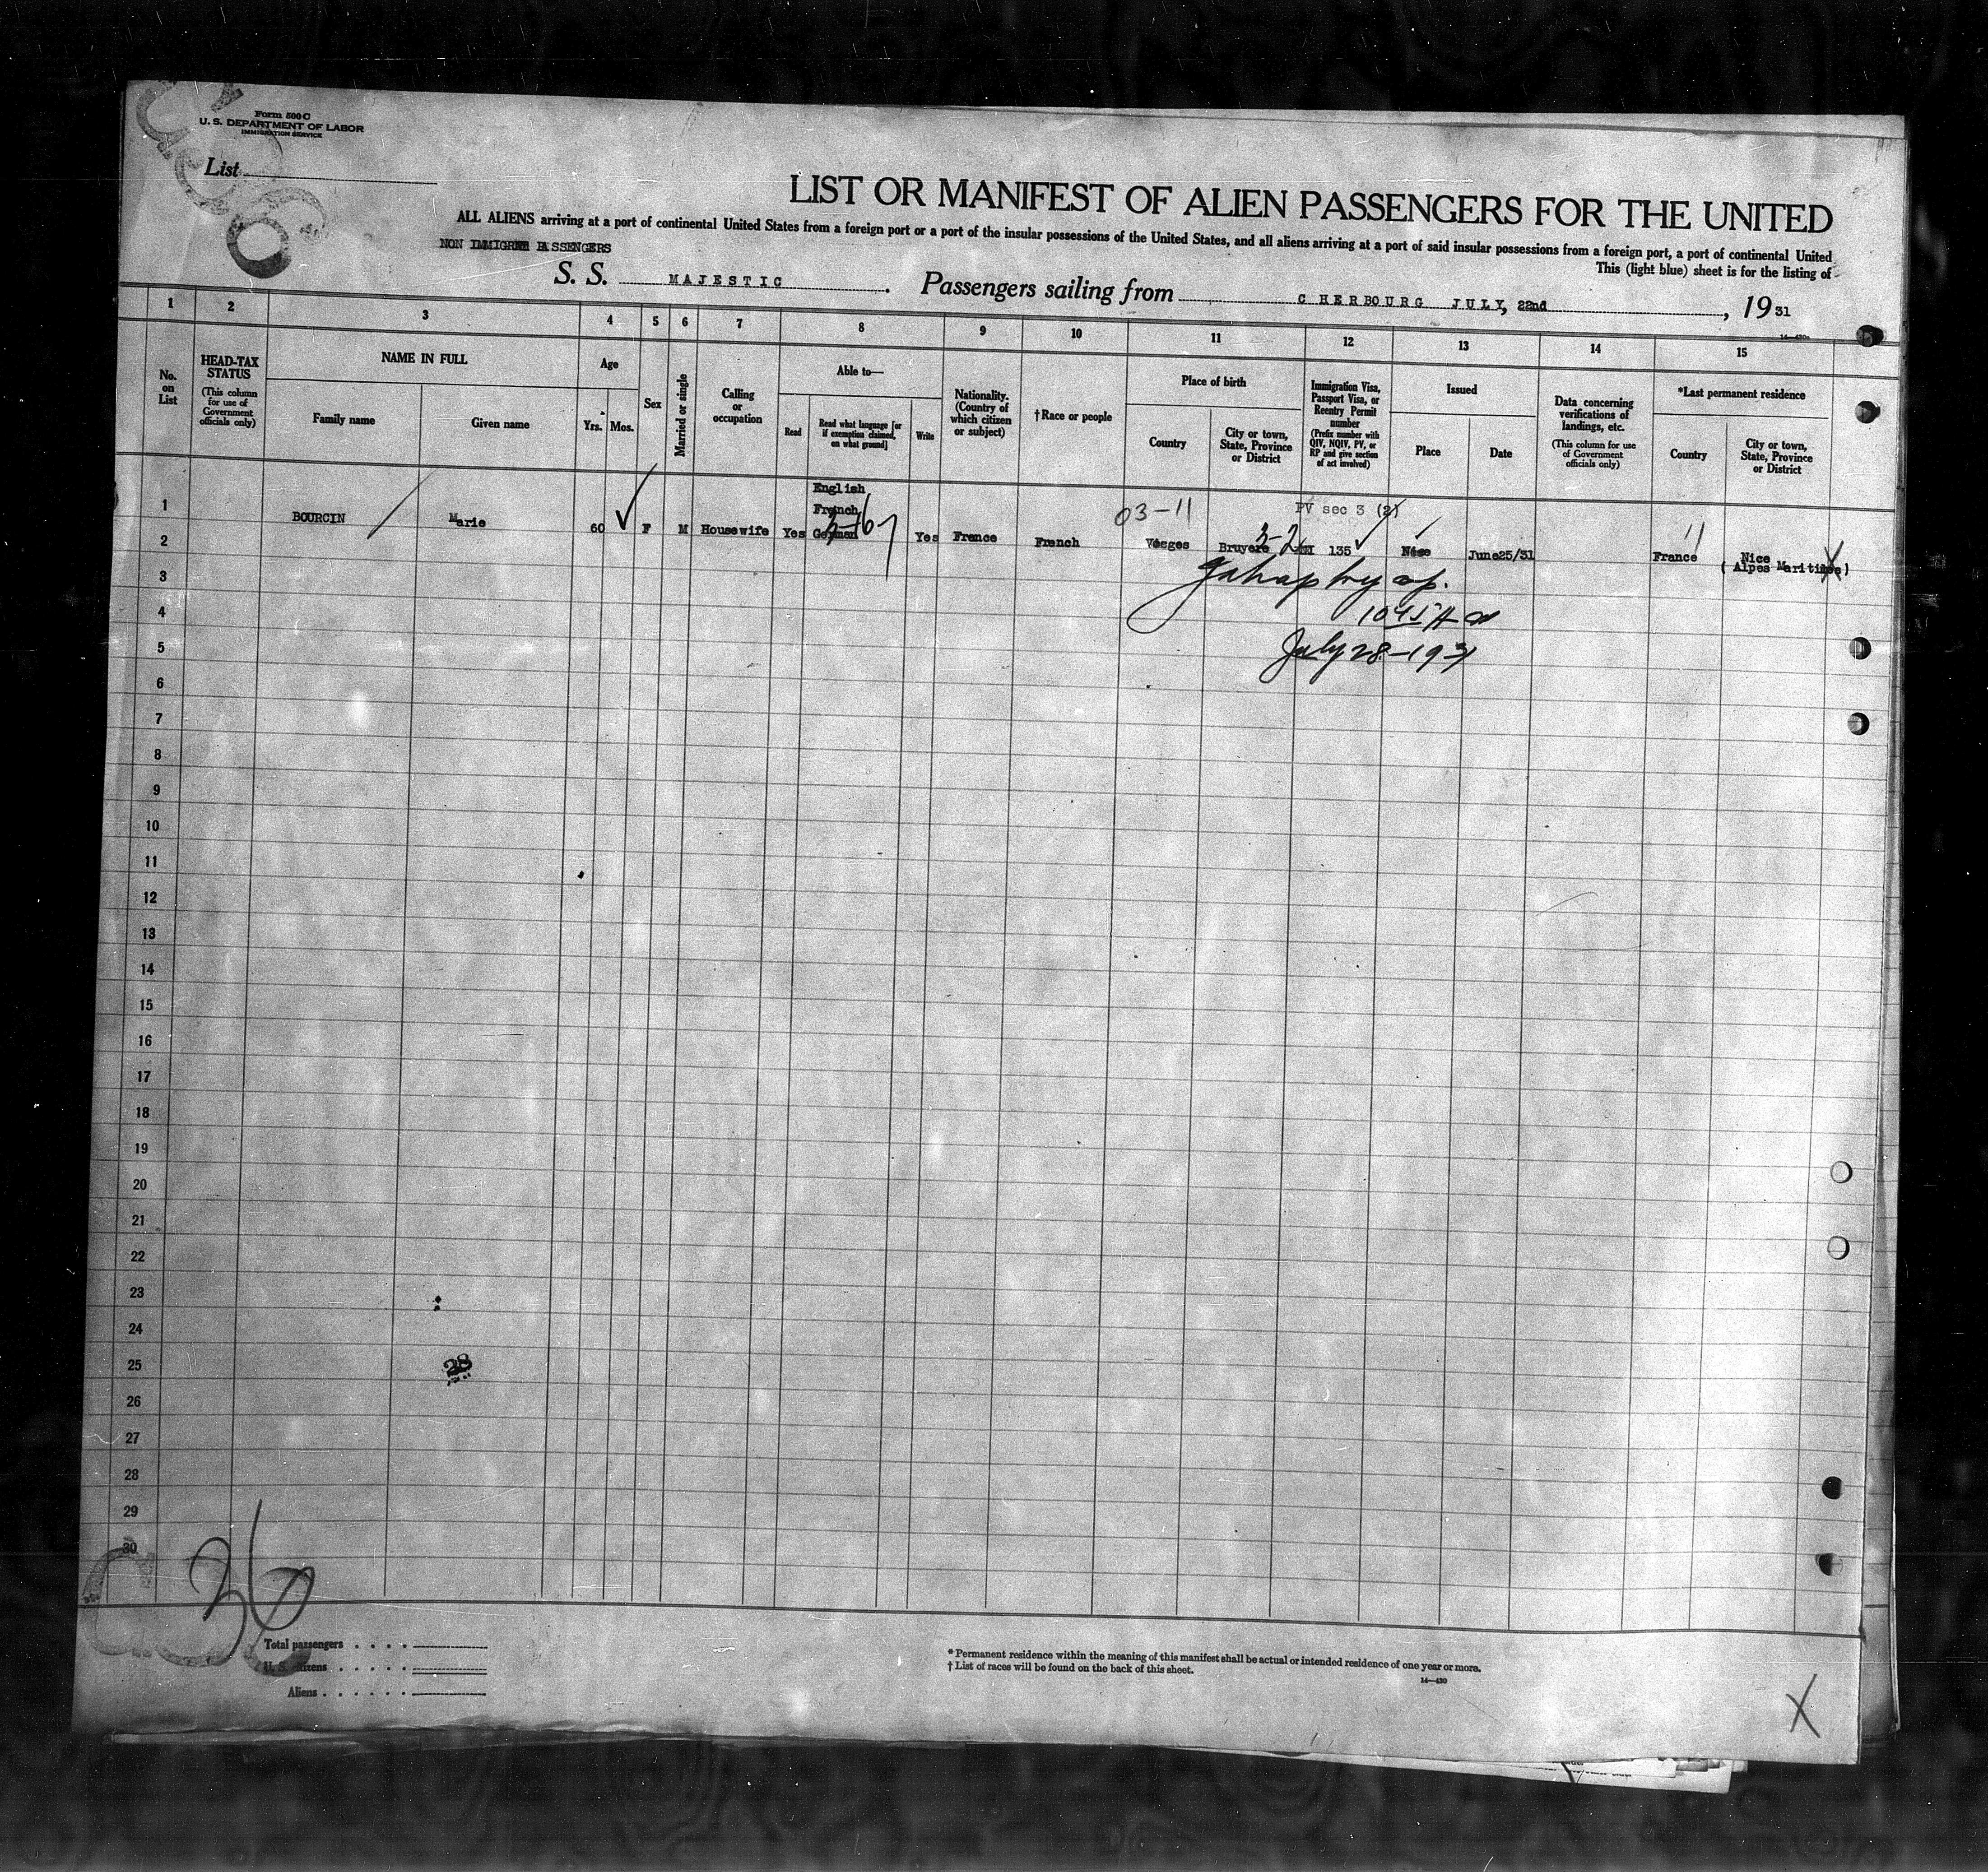 Form 500 C
U. S. DEPARTMENT OF LABOR
IMMIGRATION SERVICE
List
LIST OR MANIFEST OF ALIEN PASSENGERS FOR THE UNITED
ALL ALIENS arriving at a port of continental United States from a foreign port or a port of the insular possessions of the United States, and all aliens arriving at a port of said insular possessions from a foreign port, a port of continental United
NON IMMIGRNT PASSENGERS
This (light blue) sheet is for the listing of
S. S. MAJESTIC. Passengers sailing from CHERBOURG JULY, 22nd, 1931
1 2 3 4 5 6 7 8 9 10 11 12 13 14 15
No. on List
HEAD-TAX STATUS
(This column for use of Government officials only)
NAME IN FULL
Family name
Given name
Age
Yrs. Mos.
Sex
Married or single
Calling or occupation
Able to—
Read
Read what language [or if exemption claimed, on what ground]
Write
Nationality. (Country of which citizen or subject)
†Race or people
Place of birth
Country
City or town, State, Province or District
Immigration Visa, Passport Visa, or Reentry Permit number
(Prefix number with QIV, NQIV, PV, or RP and give section of act involved)
Issued
Place
Date
Data concerning verifications of landings, etc.
(This column for use of Government officials only)
*Last permanent residence
Country
City or town, State, Province or District
English
1 French 03-11 PV sec 3 (2)
BOURCIN Marie 60 F M Housewife Yes German Yes France French Vosges Bruyere 3-2 135 Nice June25/31 France Nice
( Alpes Maritimes)
2
3
4 1045 A
5 July 28-1931
6
7
8
9
10
11
12
13
14
15
16
17
18
19
20
21
22
23
24
25 28
26
27
28
29
30
36
Total passengers
U. S. citizens
Aliens
* Permanent residence within the meaning of this manifest shall be actual or intended residence of one year or more.
† List of races will be found on the back of this sheet.
14—430
X